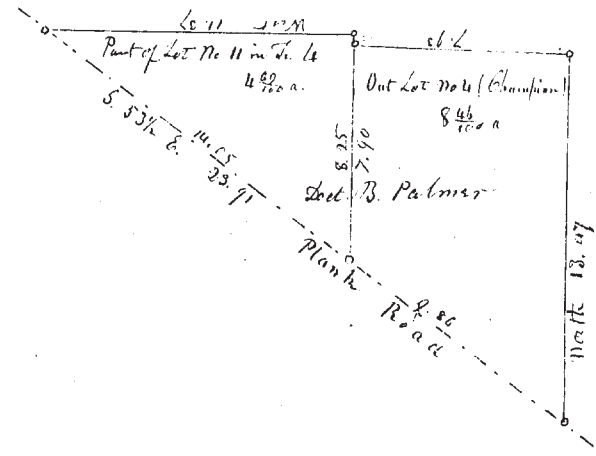 West 11.37
Part of Lot No 11 in Tr. 4
4 69/100 a.
7.93
Out Lot No 4 (Champion)
8 46/100 a
S. 53½ E.
14.05
23.91
8.25
7.90
Doct. B. Palmer
Plank
Road
9.86
North 13.47